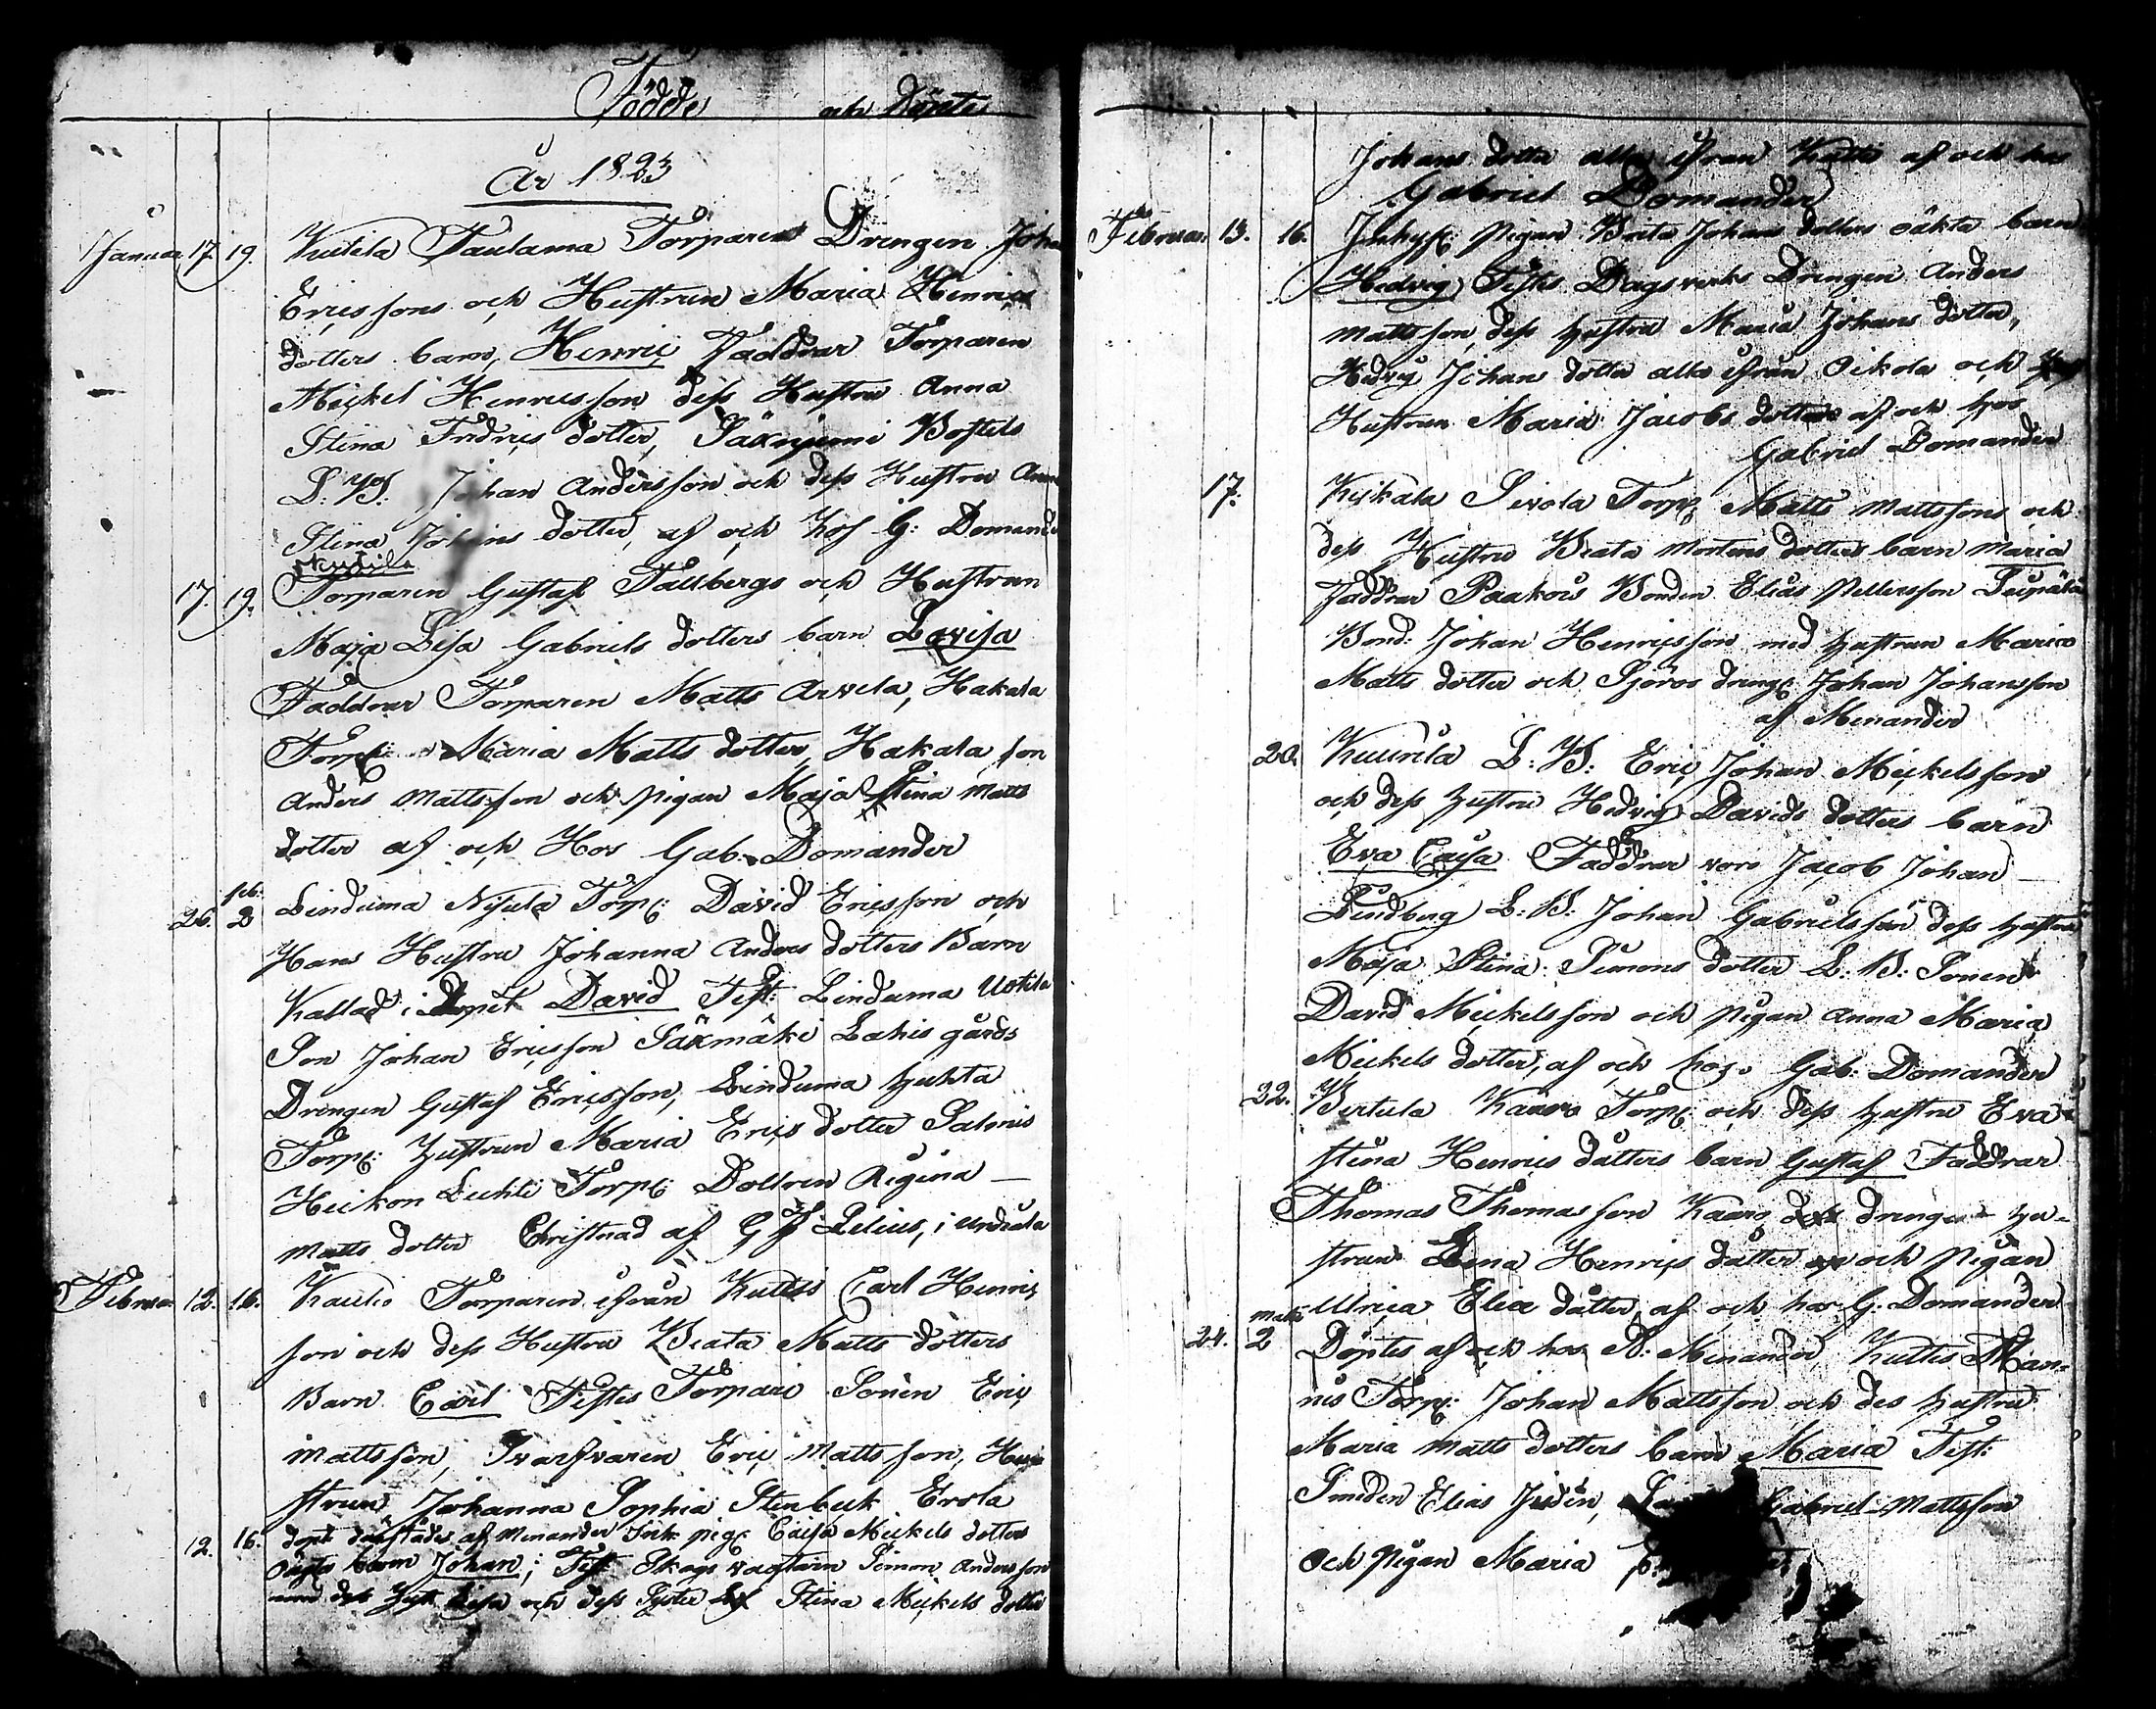 Födde och Döpte
År 1823
Januar 17. 19. Kutila Taulama Torparen Drengen Joha
Ericssons och Hustrun Maria Henrics
dotters barn, Henric Faddrar Torparen
Mickel Henricsson dess Hustru Anna
Stina Fredrics dotter, Säxnjemi Bostels
L: B: Johan Andersson och dess Hustru Anna
Stina Johans dotter, af och hos G: Domande
Kutila
17. 19. Torparen Gustaf Tallbergs och Hustrun
Maja Lisa Gabriels dotters barn Lovisa
Faddrar Torparen Matts Arvela, Hakala
Torp: Maria Matts dotter, Hakala son
Anders Mattsson och pigan Maja Stina Matts
dotter af och Hos Gab. Domander
feb:
26. 2 Linduma Nijula Torp: David Ericsson och
Hans Hustru Johanna Anders dotters Barn
Kallad i Dopet David Test: Linduma Uotila
Son Johan Ericsson Säxmäki Lahis gårds
Drengen Gustaf Ericsson, Linduma Huhta
Torp: Hustrun Maria Erics dotter Salmis
Heikon Luhti Torp: Dottren Regina
Matts dotter Christnad af G J Lilius, i Urdiala
Februa 12. 16. Kaulio Torparen ifrån Kuttis Carl Henric
son och dess Hustru Beata Matts dotters
Barn Carl Testes Torpare Sonen Eric
Mattsson, Svarfvaren Eric Mattsson, Hu
strun Johanna Sophia Stenbeck Erola
12. 16. döpt af Menander Inh. pig: Caisa Mickels dotters
oägta barn Johan; Test Skogs vagtaren Simon Andersson
med des Hust Lisa och dess Syster Stina Mickels dotter
Johans dotter alla ifrån Kuttis af och hos
Gabriel Domander
Februar. 13. 16. Inhys: Pigan Brita Johans dotters oäkta barn
Hedvig Testes Dagsverks Drengen Anders
Mattsson, dess hustru Maria Johans dotter,
Hedvig Johans dotter alla ifrån Oikola och
Hustrun Maria Jacobs dotter af och hos
Gabriel Domander
17. Kuikala Sivola Torp: Matts Mattssons och
dess Hustru Beata Mortens dotters barn Maria
Faddrar Paakois Bonden Elias Pettersson
Bond: Johan Henricsson med hustrun Maria
Matts dotter och Sjöros dreng: Johan Johansson
af Menander
20. Kuurila L: B: Eric Johan Mickelsson
och dess hustru Hedvig Davids dotters barn
Eva Caisa Faddrar voro Jacob Johan
Lindberg L: B: Johan Gabrielsson dess hustru
Maja Stina Simons dotter L: B: Sonen
David Mickelsson och pigan Anna Maria
Mickels dotter, af och hos. Gab: Domander
22. Birtula Kaaro Torp: och dess hustru Eva
Stina Henrics dåtters barn Gustaf Faddrar
Thomas Thomasson Kaaro drengen hu-
strun Lena Henrics dåtter och Pigan
Ulrica Elea dåtter, af och hos G: Domander
Mars
24. 2 Döptes af och hos A: Menander Kuttis Man-
nis Torp: Johan Mattsson och des hustru
Maria Matts dotters barn Maria Test:
Smeden Elias Gabriel Mattsson
och pigan Maria